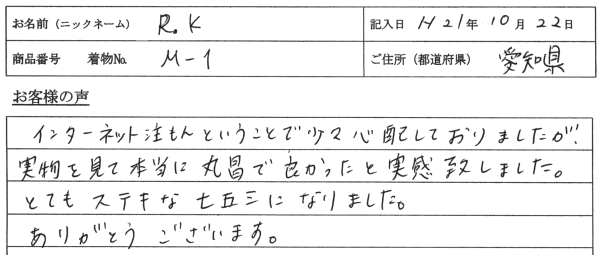 お名前(ニックネーム) R.K 記入日 H21年10月22日
商品番号 着物No. M-1 ご住所(都道府県) 愛知県
お客様の声
インターネット注もんということで少々心配しておりましたが、
実物を見て本当に丸昌で良かったと実感致しました。
とてもステキな七五三になりました。
ありがとうございます。